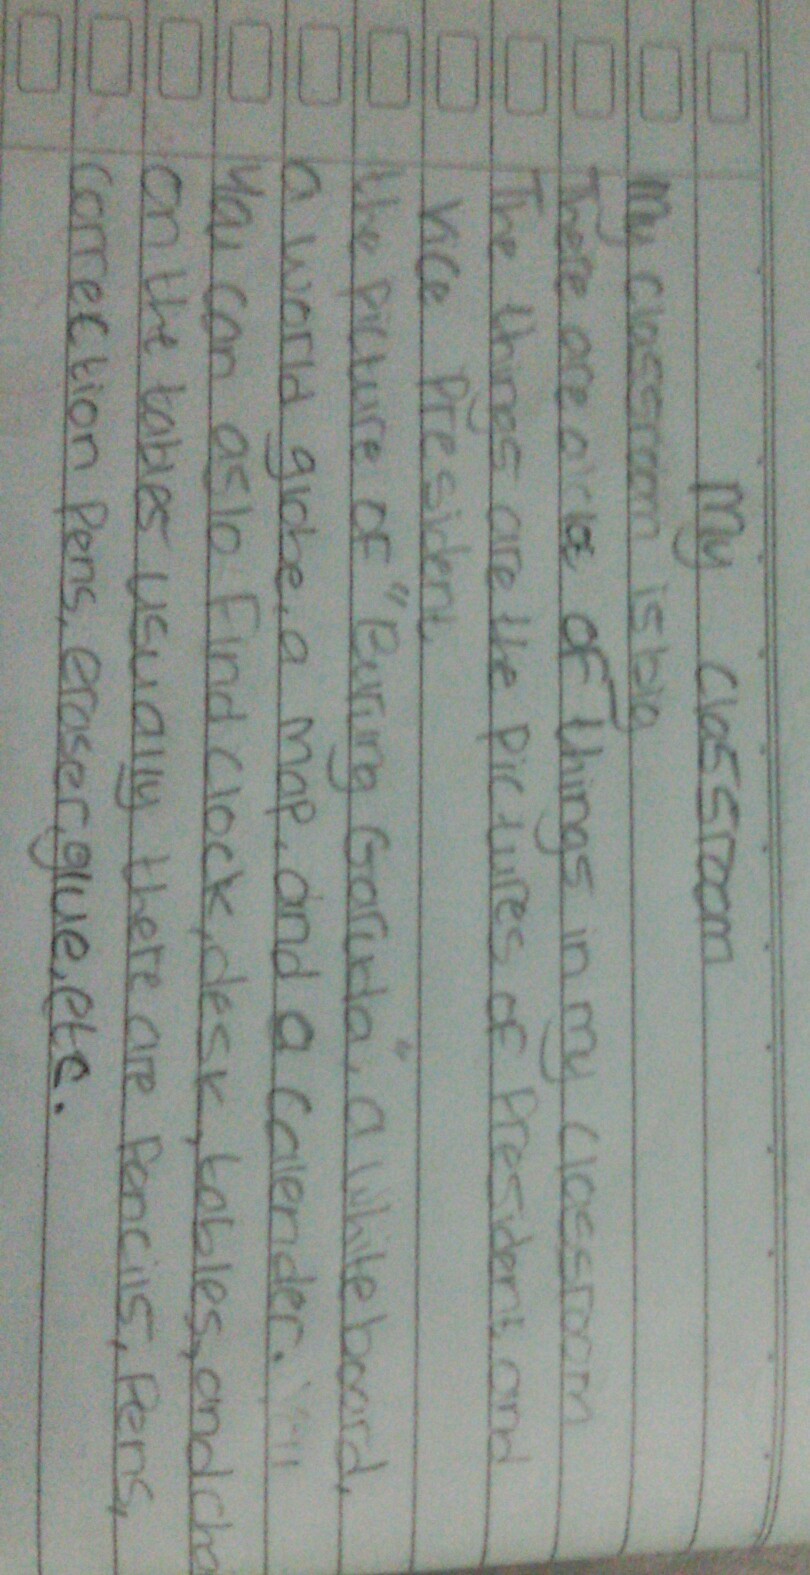 My classroom
My classroom is big
There are a lot of things in my classroom
The things are the pictures of President and
vice President,
the picture of "Burung Garuda", a whiteboard,
a world globe, a map, and a calender.
You can aslo find clock, desk, tables, and cha
on the tables usually there are pencils, pens,
correction pens, eraser, glue, etc.